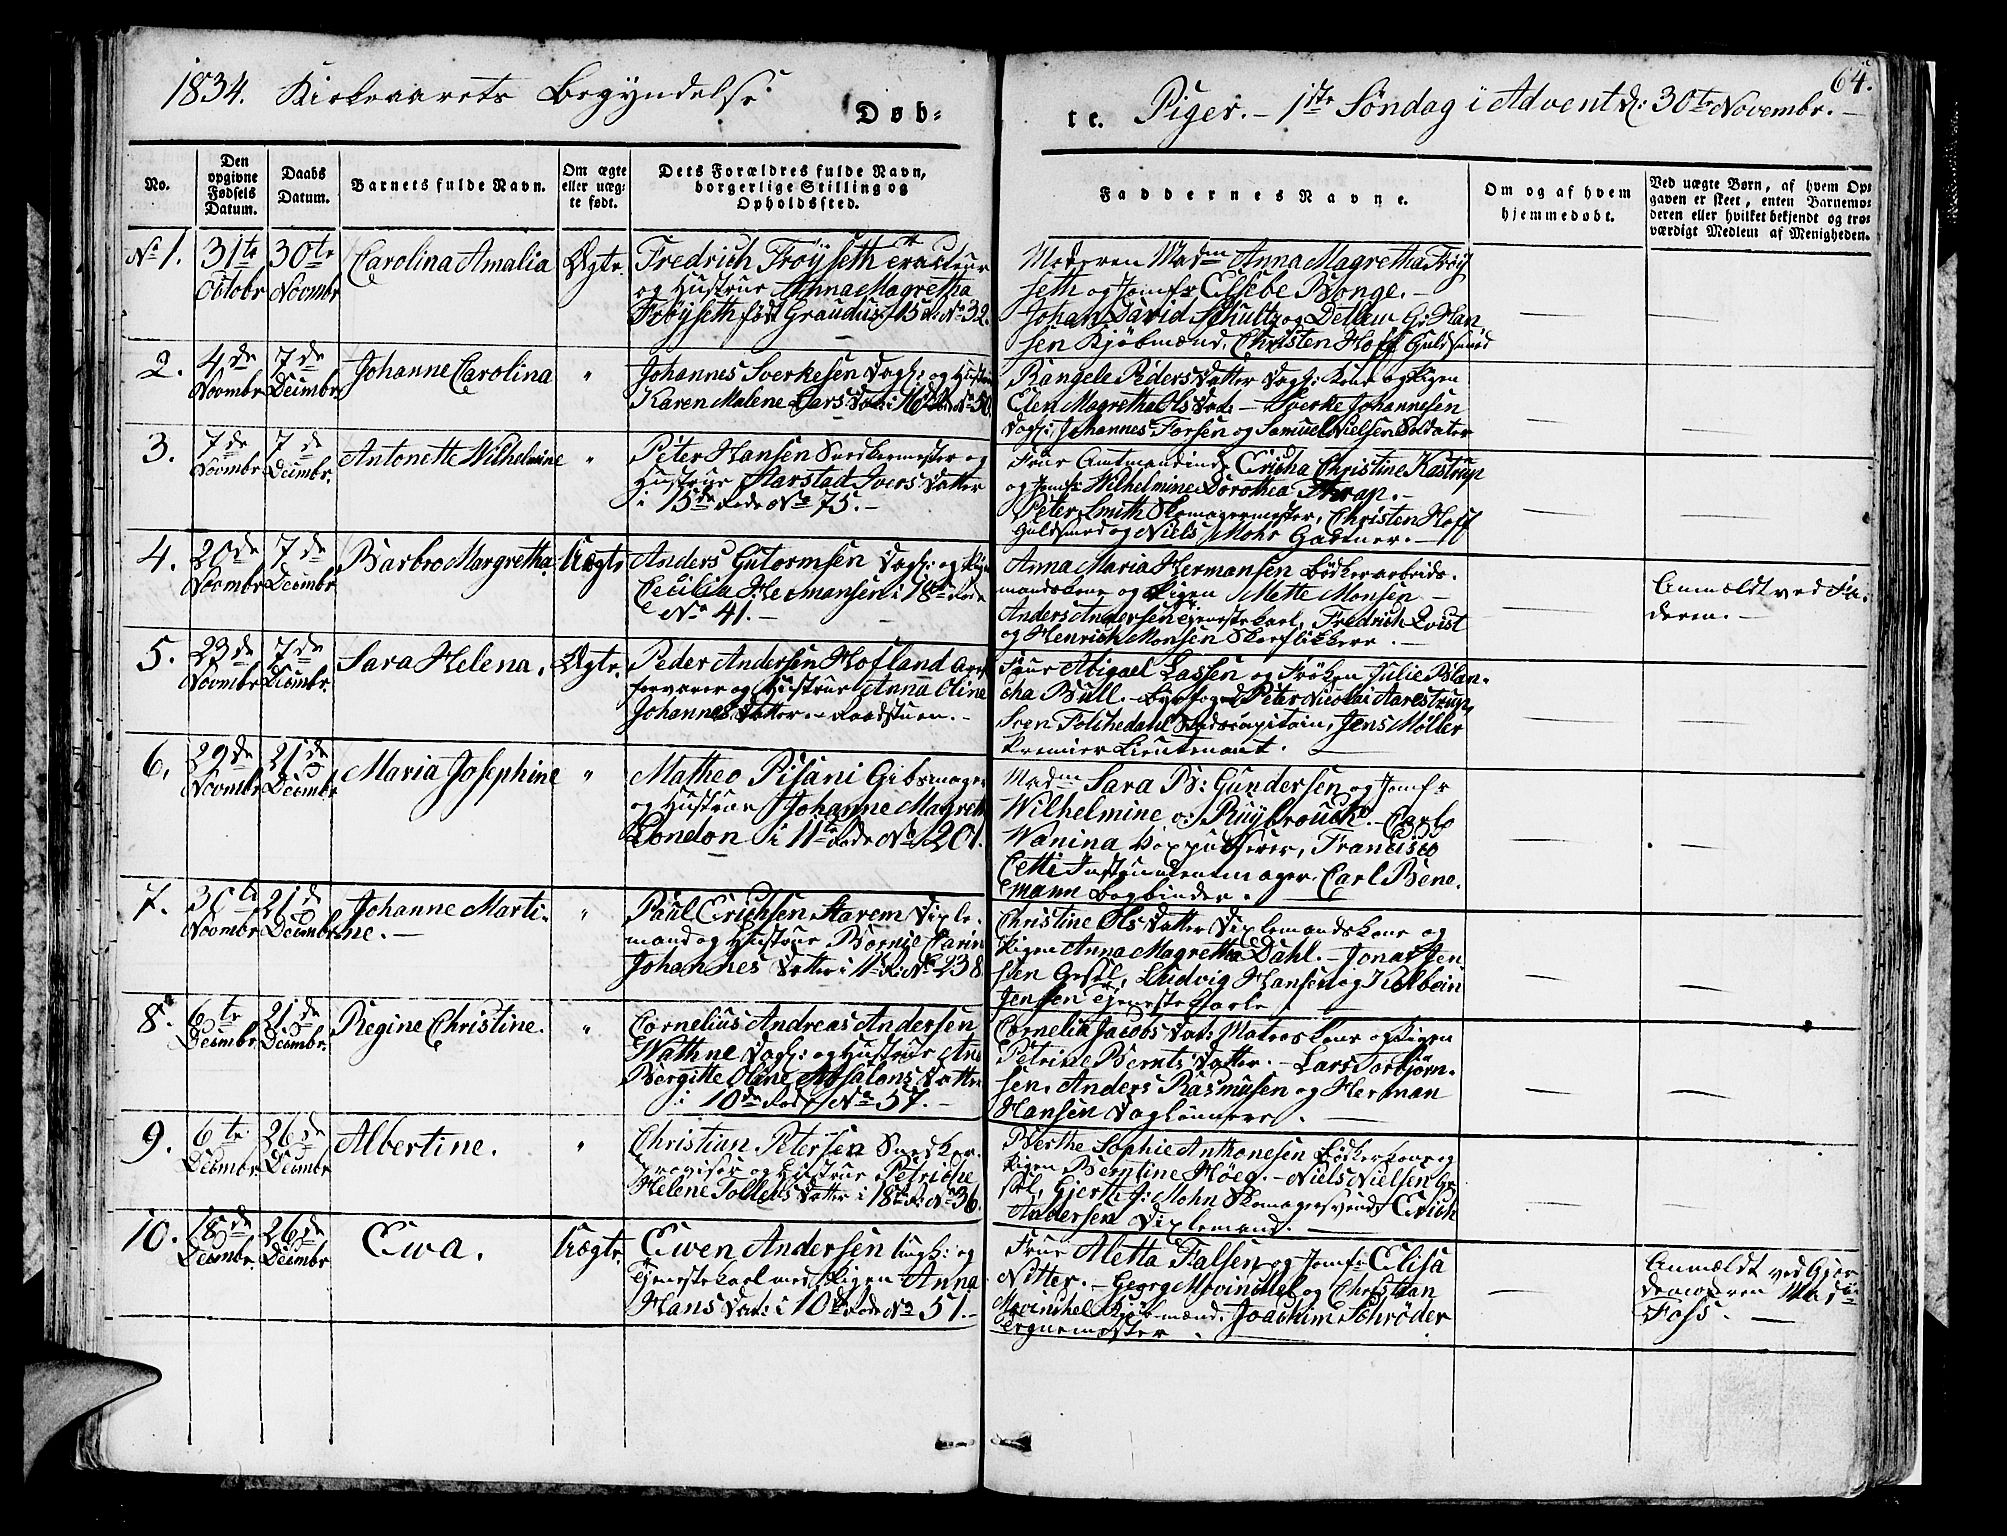 1834. Kirkeaarets Begyndelse
Døb-
te. Piger. - 1ste Søndag i Advent d: 30te Novembr. -
64.
No.
Den opgivne Fødsels Datum.
Daabs Datum.
Barnets fulde Navn.
Om ægte eller uæg-te født.
Dets Forældres fulde Navn, borgerlige Stilling og Opholdssted.
Faddernes Navne.
Om og af hvem hjemmedøbt.
Ved uægte Børn, af hvem Op-
gaven er skeet, enten Barnemo-
deren eller hvilket bekjendt og tro-
værdigt Medlem af Menigheden.
No 1.
31te Octobr
30te Novmbr
Carolina Amalia
Ægte.
Fredrich Frøyseth
og Hustrue Anna Magretha
Frøyseth født Graudus, 15 R: No 32.
Moderen Madm Anna Magretha Frøy
seth og Jomfr Elsebe Bonge. -
Johan David Schultz og Detlew G: Han
sen Kjøbmænd, Christen Hoff Guldsmed
2.
4de Novmbr
7de Decmbr.
Johanne Carolina
"
Johannes Sverkesen Dagl: og Hustru
Karen Malene Lars Dat: i
Rangele Piders Datter Dagl: Kone og Pigen
Elen Magretha Ols Dat: - Sverke Johannesen
Dagl: Johannes Forsen og Samuel Nielsen Soldater
3.
7de Novmbr
7de Decmbr.
Antonette Wilhelmine
"
Peter Hansen Snedkermester og
Hustrue Starstad Ivers Datter
i 15de Rode No 75. -
Frue Amtmandinde Ericha Christine Kastrup
og Jomfr Wilhelmine Dorothea -
Peter Smith Skomagermester, Christen Hoff
Guldsmed og Niels Mohr Gartner. -
4.
20de Novmbr
7de Decmbr
Barbro Margretha
Uægte
Anders Gutormsen Dagl: og Pigen
Cecilia Hermansen i 18de Rode
No 41. -
Anna Maria Hermansen Bødkerarbeids-
mandskone og Pigen Mette Monsen -
Anders Andersen Tjenestekarl, Fredrich Qvist
og Henrich Monsen Skoeflikkere. -
Anmældt ved Fa-
deren. -
5.
23de Novmbr
7de Decmbr.
Sara Helena.
Ægte.
Peder Andersen Hofland
forvarer og Hustrue Anna Oline
Johannes Datter. - Raadstuen. -
Frue Abigael Lassen og Frøken Julie Blan-
cha Bull. - Byefoged Peter Nicolai Aarestrup,
Sven Foldsedahl Stadscapitain, Jens Møller
Premier Lieutenant.
6.
29de Novmbr
21de Decmbr
Maria Josephine
"
Matheo Pisani Gibsmager
og Hustrue Johanne Magreth
London i 11te Rode No 201.
Madm Sara B: Gundersen og Jomfr
Wilhelmine o: Ruybrouch. - Carlo
Wanina, Francisco
Cetti Instrumentmager. Carl Bene-
mann Bogbinder.
7.
30te Novmbr
21de Decmbr
Johanne Marti-
ne. -
"
Paul Erichsen Starem Diple-
mand og Hustrue Bornie Carin
Johannes Datter i 11te R: No 238
Christine Ols Datter Diplemandskone og
Pigen Anna Magretha Dahl. - Jonas Jen
sen Gesel, Ludvig Hansen og Kolbein
Jensen Tjenestekarle.
8.
6te Decmbr.
21de Decmbr.
Regine Christine.
"
Cornelius Andreas Andersen
Wathne Dagl: og Hustrue Ane
Bergitte Oline Absalons Datter
i 10de Rode No 57. -
Cornelia Jacobs Dat: Matros Kone og Pigen
Petrine Bernts Datter. - Lars Torbjørn-
sen, Anders Rasmusen og Herman
Hansen Daglønnere.
9.
6te Decmbr.
26de Decmbr
Albertine.
"
Christian Petersen Snedker.
og Hustrue Petriche
Helene Tollers Datter i 18de R: No 36.
Berthe Sophie Anthonesen Bødkerkone og
Pigen Berntine Høeg. - Niels Nielsen Ge
sel, Gjerth J: Mohn Skomagersvend, Erich
Andersen Diplemand.
10.
18de Decmbr.
26de Decmbr
Ewa.
Uægte.
Ewen Andersen Ungk: og
Tjenestekarl med Pigen Anna
Hans Dat: i 10de Rode No 51. -
Frue Aletta Falsen og Jomfr Elisa
Nitter. - Georg Mowinckel og Christian
Mowinckel Kjøbmænd, Joachim Schrøder
Tegnemester.
Anmældt ved Gjor
demoderen
Foss. -